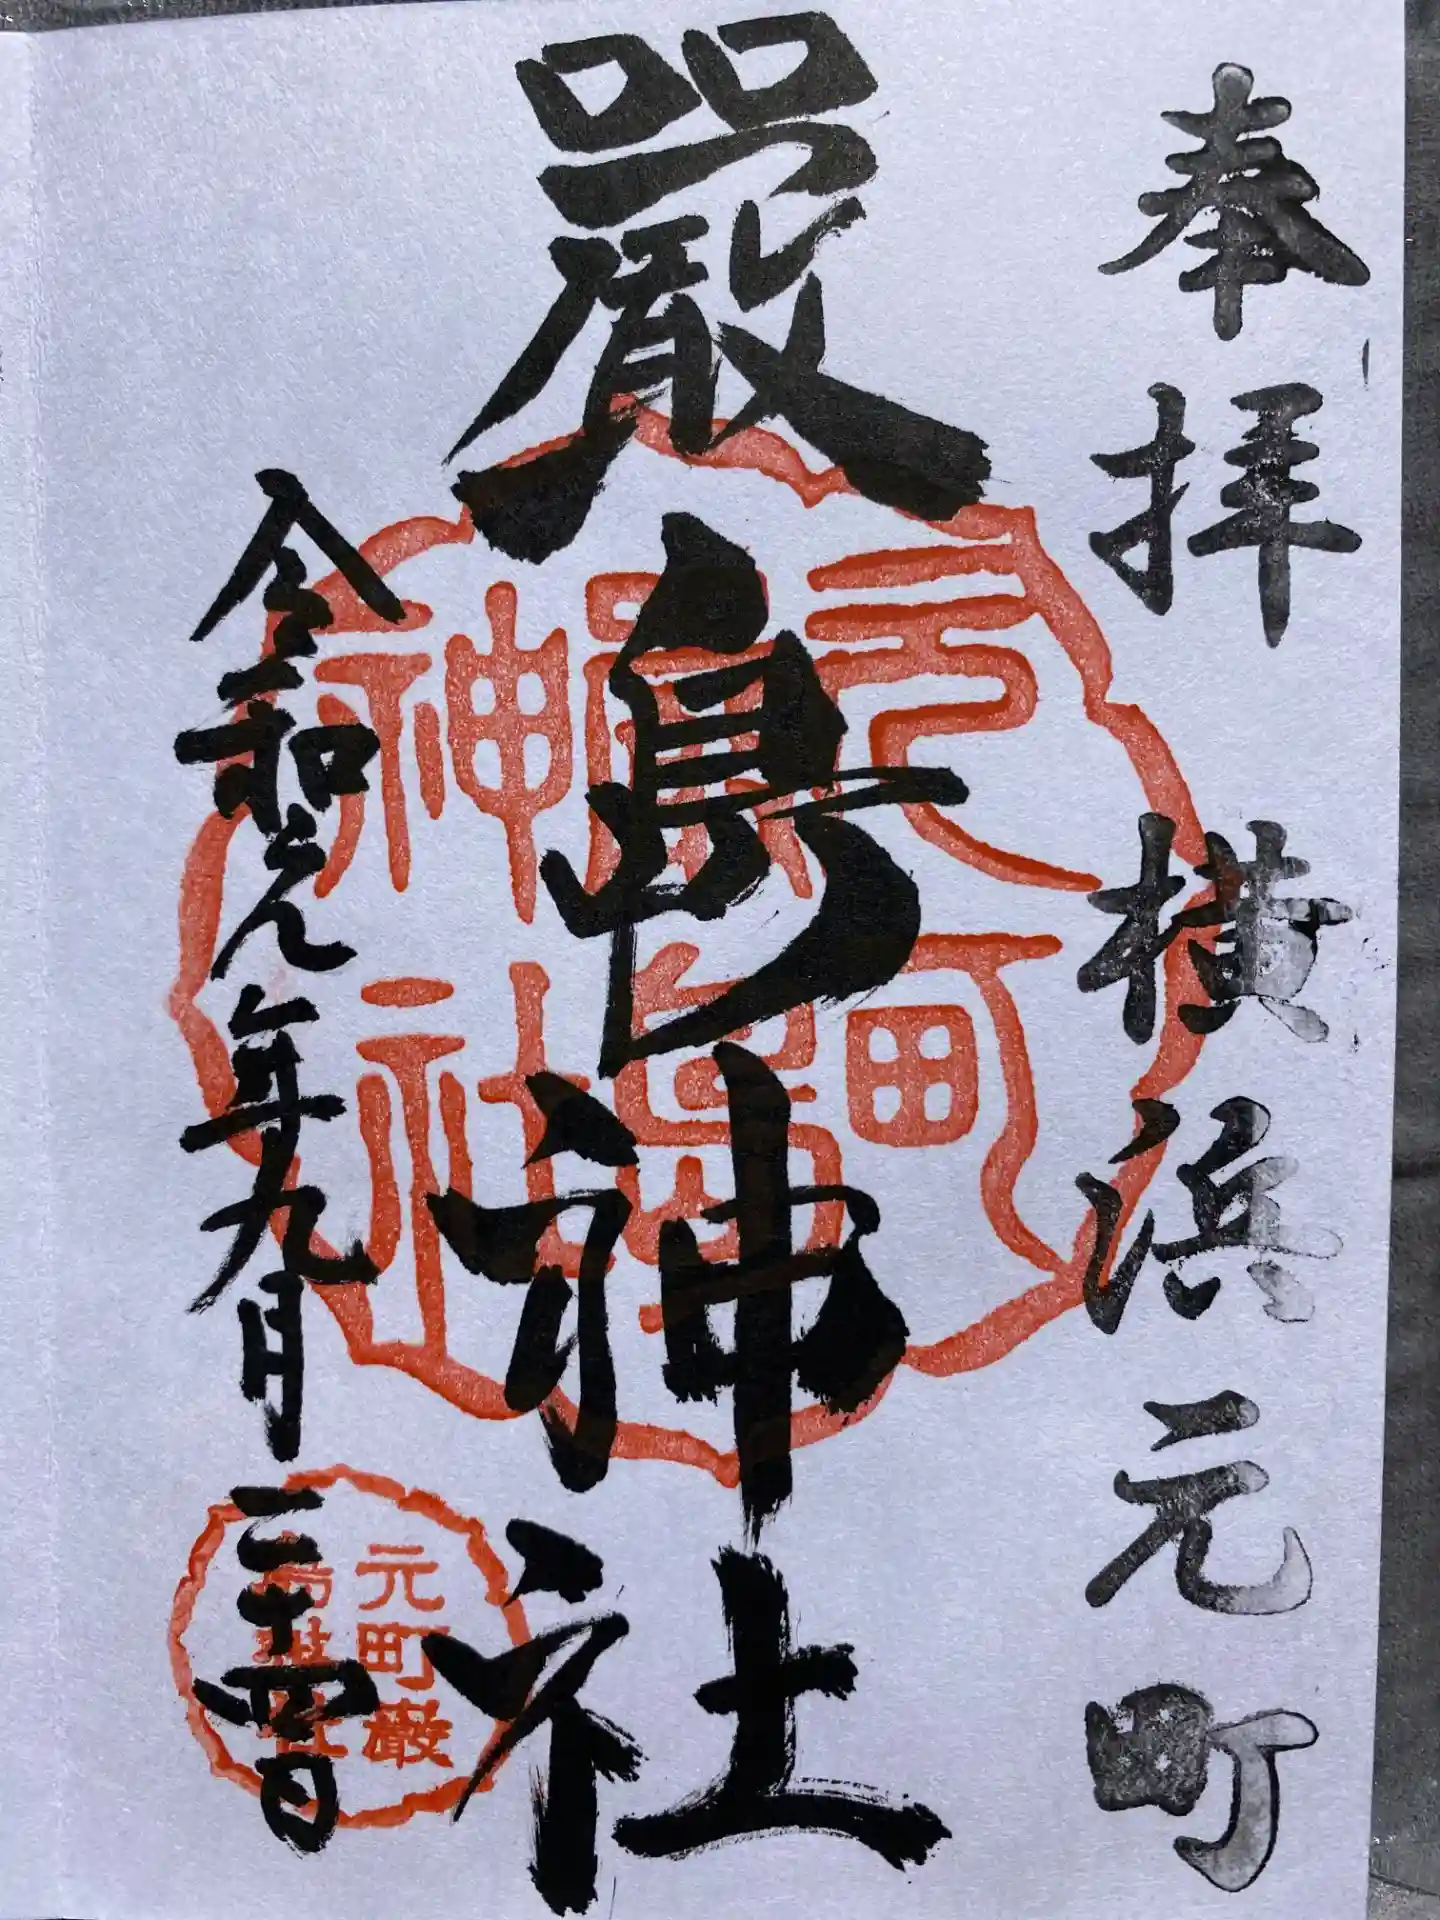 奉拝 横浜元町
嚴島神社
令和元年九月二十四日
元町嚴
島神社
元町
嚴島
神社